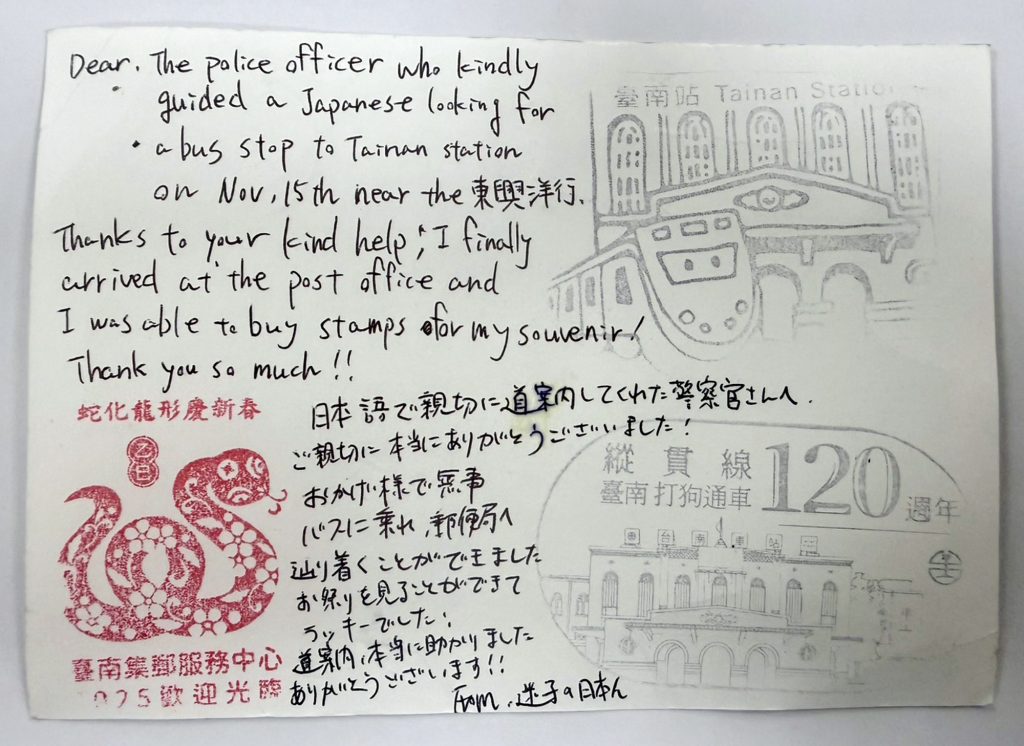 Dear. The police officer who kindly
guided a Japanese looking for
a bus stop to Tainan station
on Nov, 15th near the 東興洋行.
Thanks to your kind help, I finally
arrived at the post office and
I was able to buy stamps for my souvenir!
Thank you so much!!
臺南站 Tainan Station
日本語で親切に道案内してくれた警察官さんへ.
ご親切に本当にありがとうございました!
おかげ様で無事
バスに乗れ、郵便局へ
辿り着くことができました
お祭りを見ることができて
ラッキーでした!
道案内、本当に助かりました
ありがとうございます!!
From、迷子の日本人
蛇化龍形慶新春
乙巳
臺南集郵服務中心
歡迎光臨
縱貫線
臺南打狗通車
120
週年